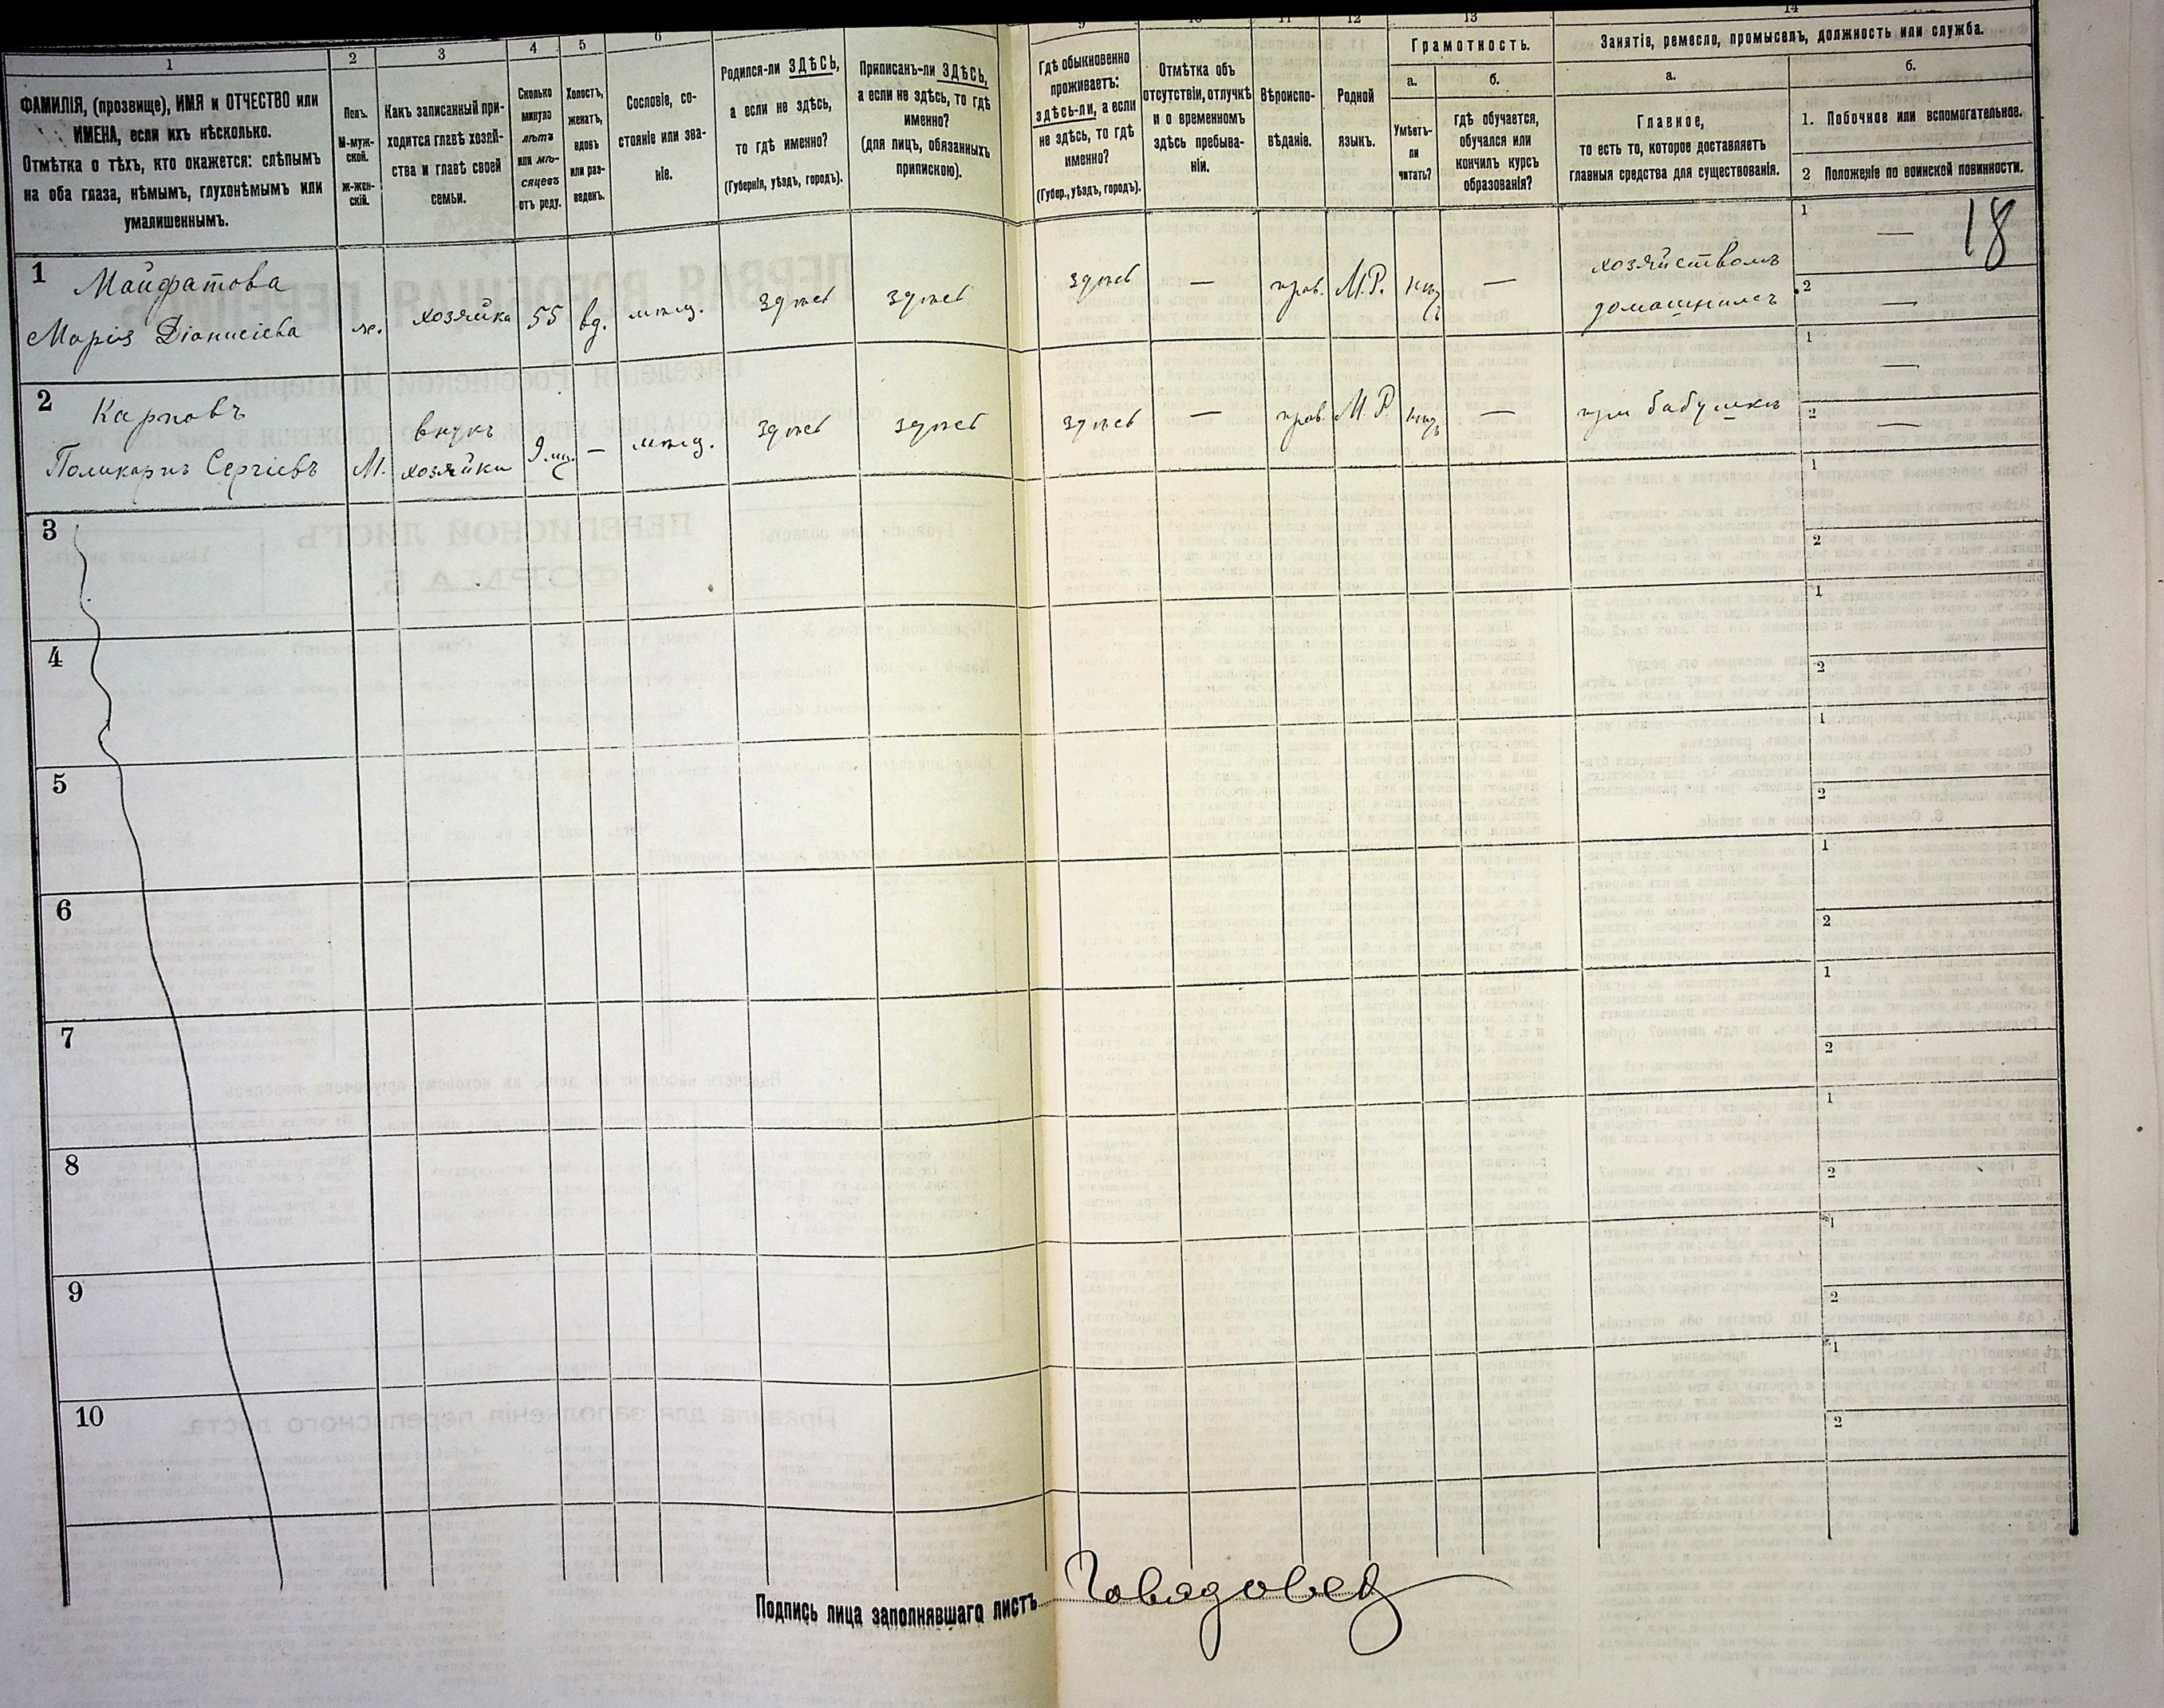 1
2
3
4
5
6
9
10
11
12
13
14
ФАМИЛІЯ, (прозвище), ИМЯ и ОТЧЕСТВО или
ИМЕНА, если ихъ нѣсколько.
Отмѣтка о тѣхъ, кто окажется: слѣпымъ
на оба глаза, нѣмымъ, глухонѣмымъ или
умалишеннымъ.
Полъ.
М-муж-
ской.
ж-жен-
скій.
Какъ записанный при-
ходится главѣ хозяй-
ства и главѣ своей
семьи.
Сколько
минуло
лѣтъ
или мѣ-
сяцевъ
отъ роду.
Холостъ,
женатъ,
вдовъ
или раз-
веденъ.
Сословіе, со-
стояніе или зва-
ніе.
Родился-ли ЗДѢСЬ,
а если не здѣсь,
то гдѣ именно?
(Губернія, уѣздъ, городъ).
Приписанъ-ли ЗДѢСЬ,
а если не здѣсь, то гдѣ
именно?
(для лицъ, обязанныхъ
припискою).
Гдѣ обыкновенно
проживаетъ:
здѣсь-ли, а если
не здѣсь, то гдѣ
именно?
(Губер., уѣздъ, городъ).
Отмѣтка объ
отсутствіи, отлучкѣ
и о временномъ
здѣсь пребыва-
ніи.
Вѣроиспо-
вѣданіе.
Родной
языкъ.
Грамотность.
а.
Умѣетъ-
ли
читать?
б.
гдѣ обучается,
обучался или
кончилъ курсъ
образованія?
Занятіе, ремесло, промыселъ, должность или служба.
а.
Главное,
то есть то, которое доставляетъ
главныя средства для существованія.
б.
1. Побочное или вспомогательное.
2 Положеніе по воинской повинности.
18
1
Майфатова
Марія Діонисіева
ж.
хозяйка
55
вд.
мѣщ.
здѣсь
здѣсь
здѣсь
—
прав.
М.Р.
нѣтъ
—
хозяйствомъ
домашнимъ
1
—
2
—
2
Карповъ
Поликарпъ Сергіевъ
М.
внукъ
хозяйки
9 мц.
—
мѣщ.
здѣсь
здѣсь
здѣсь
—
прав.
М.Р.
нѣтъ
—
при бабушкѣ
1
—
2
—
3
1
2
4
1
2
5
1
2
6
1
2
7
1
2
8
1
2
9
1
2
10
1
2
Подпись лица заполнявшаго листъ